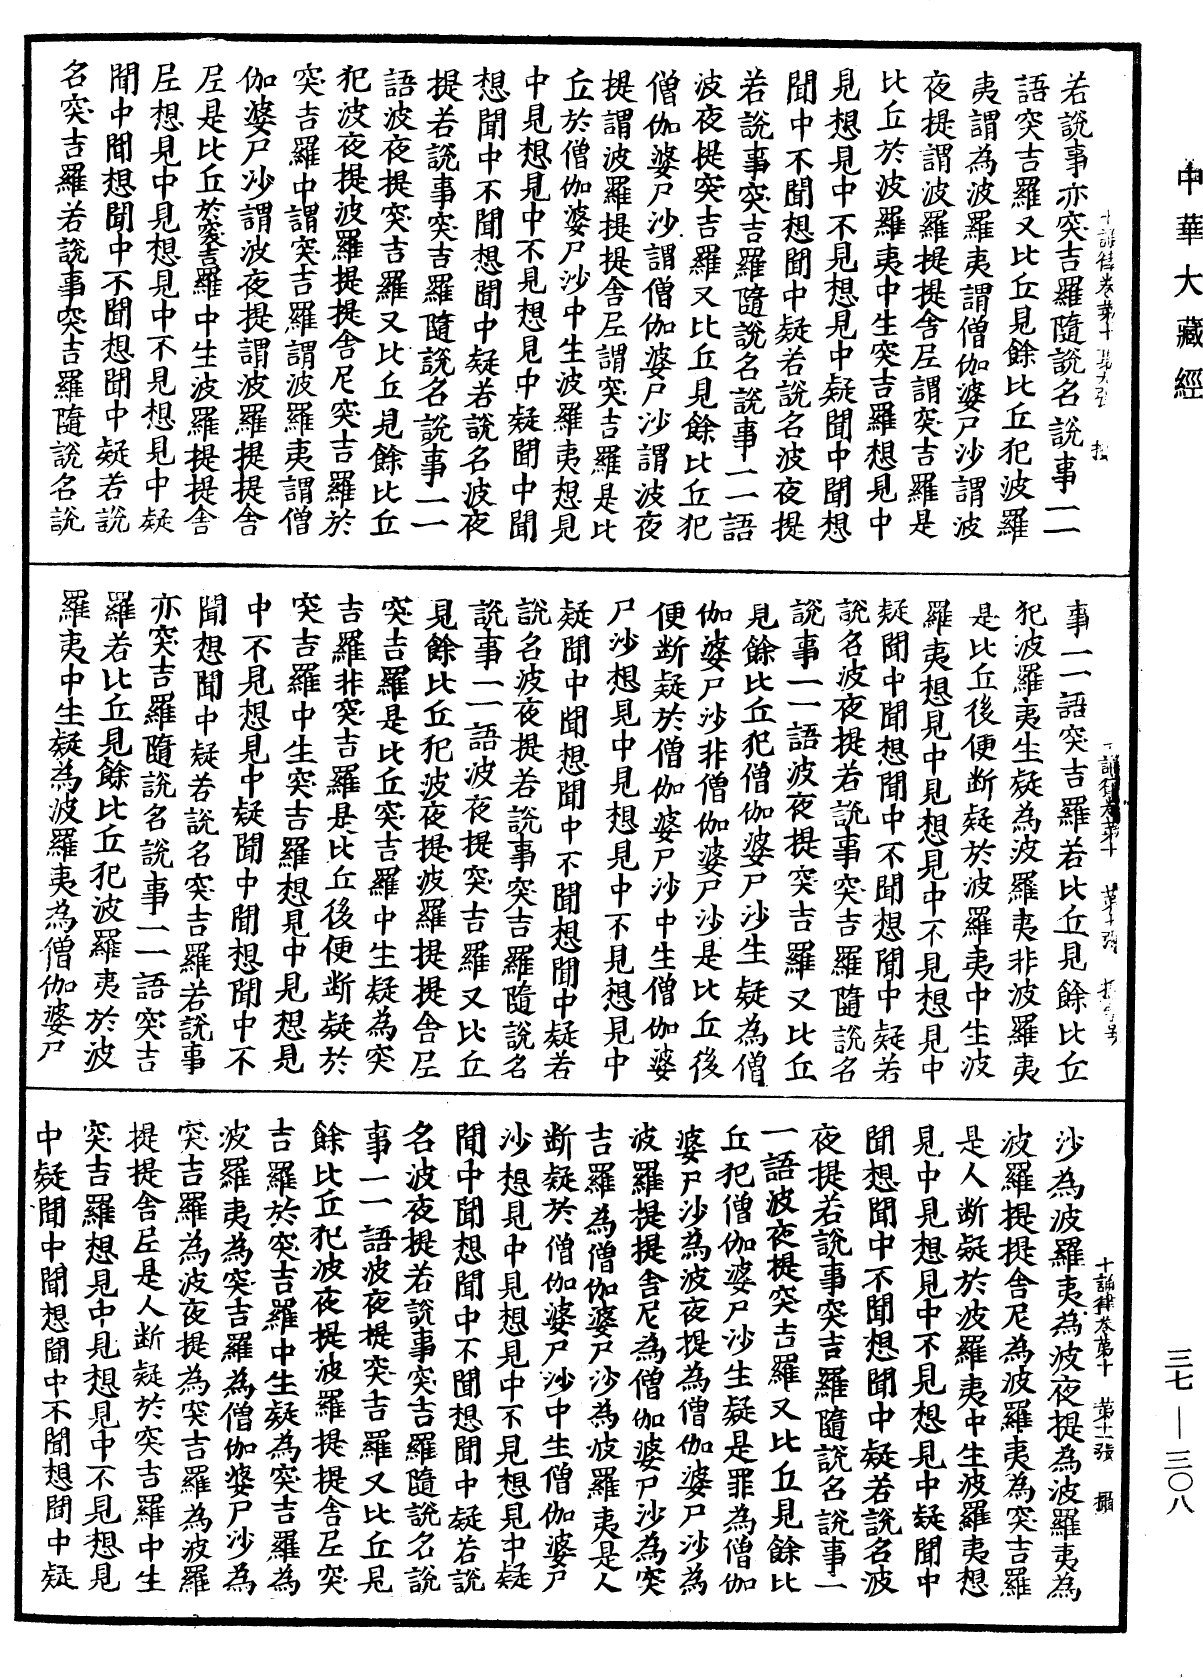 中華大藏經
若說事亦突吉羅隨說名說事一一
語突吉羅又比丘見餘比丘犯波羅
夷謂為波羅夷謂僧伽婆尸沙謂波
夜提謂波羅提提舍尼謂突吉羅是
比丘於波羅夷中生突吉羅想見中
見想見中不見想見中疑聞中聞想
聞中不聞想聞中疑若說名波夜提
若說事突吉羅隨說名說事一一語
波夜提突吉羅又比丘見餘比丘犯
僧伽婆尸沙謂僧伽婆尸沙謂波夜
提謂波羅提提舍尼謂突吉羅是比
丘於僧伽婆尸沙中生波羅夷想見
中見想見中不見想見中疑聞中聞
想聞中不聞想聞中疑若說名波夜
提若說事突吉羅隨說名說事一一
語波夜提突吉羅又比丘見餘比丘
犯波夜提波羅提提舍尼突吉羅於
突吉羅中謂突吉羅謂波羅夷謂僧
伽婆尸沙謂波夜提謂波羅提提舍
尼是比丘於突吉羅中生波羅提提舍
尼想見中見想見中不見想見中疑
聞中聞想聞中不聞想聞中疑若說
名突吉羅若說事突吉羅隨說名說
事一一語突吉羅若比丘見餘比丘
犯波羅夷生疑為波羅夷非波羅夷
是比丘後便斷疑於波羅夷中生波
羅夷想見中見想見中不見想見中
疑聞中聞想聞中不聞想聞中疑若
說名波夜提若說事突吉羅隨說名
說事一一語波夜提突吉羅又比丘
見餘比丘犯僧伽婆尸沙生疑為僧
伽婆尸沙非僧伽婆尸沙是比丘後
便斷疑於僧伽婆尸沙中生僧伽婆
尸沙想見中見想見中不見想見中
疑聞中聞想聞中不聞想聞中疑若
說名波夜提若說事突吉羅隨說名
說事一一語波夜提突吉羅又比丘
見餘比丘犯波夜提波羅提提舍尼
突吉羅是比丘突吉羅中生疑為突
吉羅非突吉羅是比丘後便斷疑於
突吉羅中生突吉羅想見中見想見
中不見想見中疑聞中聞想聞中不
聞想聞中疑若說名突吉羅若說事
亦突吉羅隨說名說事一一語突吉
羅若比丘見餘比丘犯波羅夷於波
羅夷中生疑為波羅夷為僧伽婆尸
沙為波羅夷為波夜提為波羅夷為
波羅提提舍尼為波羅夷為突吉羅
是人斷疑於波羅夷中生波羅夷想
見中見想見中不見想見中疑聞中
聞想聞中不聞想聞中疑若說名波
夜提若說事突吉羅隨說名說事一
一語波夜提突吉羅又比丘見餘比
丘犯僧伽婆尸沙生疑是罪為僧伽
婆尸沙為波夜提為僧伽婆尸沙為
波羅提提舍尼為僧伽婆尸沙為突
吉羅為僧伽婆尸沙為波羅夷是人
斷疑於僧伽婆尸沙中生僧伽婆尸
沙想見中見想見中不見想見中疑
聞中聞想聞中不聞想聞中疑若說
名波夜提若說事突吉羅隨說名說
事一一語波夜提突吉羅又比丘見
餘比丘犯波夜提波羅提提舍尼突
吉羅於突吉羅中生疑為突吉羅為
波羅夷為突吉羅為僧伽婆尸沙為
突吉羅為波夜提為突吉羅為波羅
提提舍尼是人斷疑於突吉羅中生
突吉羅想見中見想見中不見想見
中疑聞中聞想聞中不聞想聞中疑
十誦律卷第十 第十一張
三七—三〇八